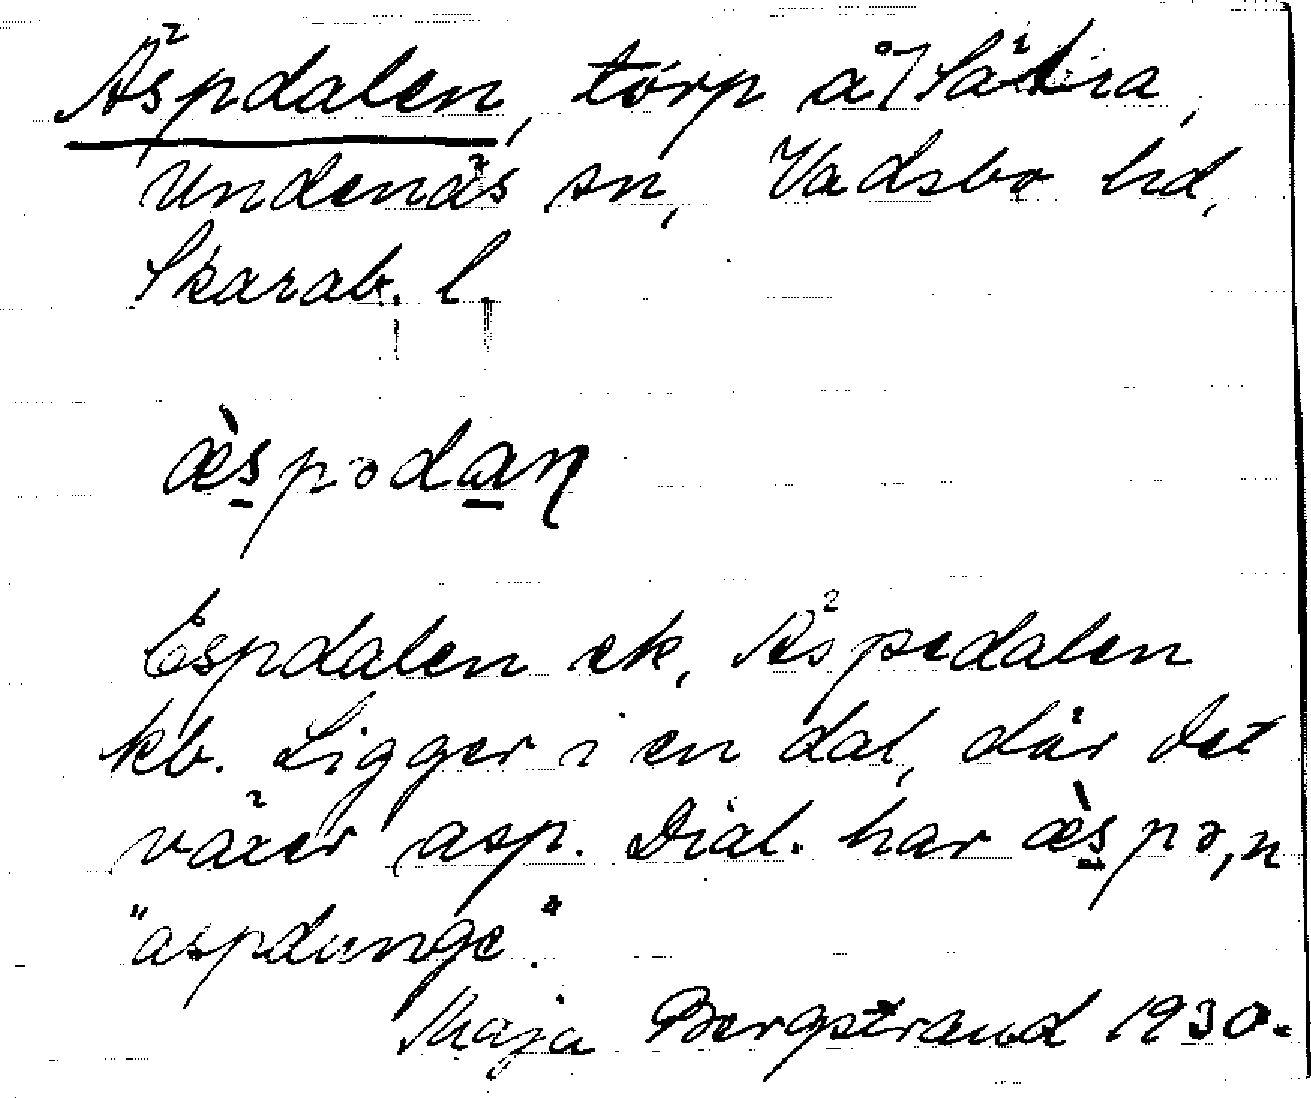 Äspdalen, torp å Sätra,
Undenäs sn, Vadsbo hd,
Skarab. l.
æ̀spədaɳ
Espdalen ek, Äspedalen
kb. Ligger i en dal, där det
växer asp. Dial. har æ̀spə, n
"aspdunge".
Maja Bergstrand 1930.